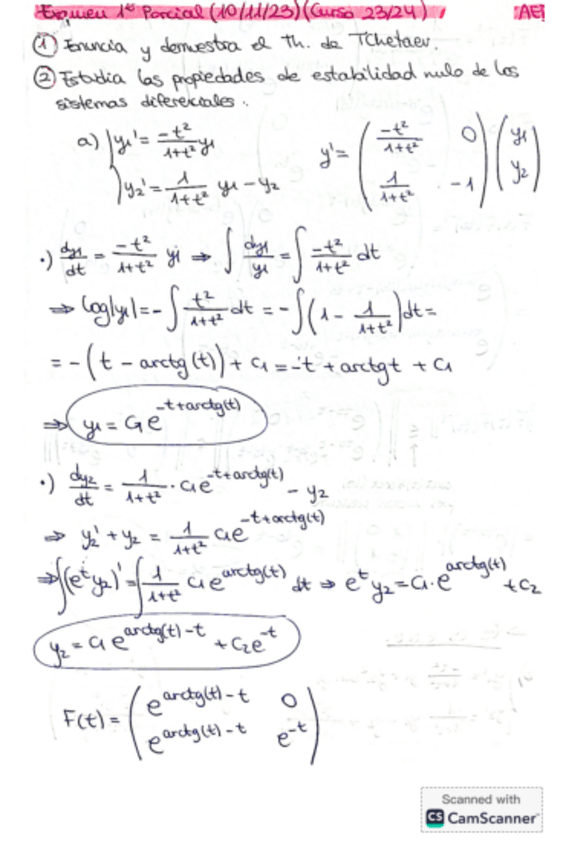 Examen 1er Parcial (10/11/23) (Curso 23/24) AE
① Enuncia y demuestra el Th. de Tchetaev.
② Estudia las propiedades de estabilidad nulo de los
sistemas diferenciales.
a) { y1' = -t²/(1+t²) y1
y2' = 1/(1+t²) y1 - y2
y' = ( -t²/(1+t²) 0 ; 1/(1+t²) -1 ) ( y1 ; y2 )
·) dy1/dt = -t²/(1+t²) y1 ⇒ ∫ dy1/y1 = ∫ -t²/(1+t²) dt
⇒ log|y1| = -∫ t²/(1+t²) dt = -∫ (1 - 1/(1+t²)) dt =
= -(t - arctg(t)) + C1 = -t + arctg t + C1
⇒ y1 = C1 e^(-t+arctg(t))
·) dy2/dt = 1/(1+t²) · C1 e^(-t+arctg(t)) - y2
⇒ y2' + y2 = 1/(1+t²) C1 e^(-t+arctg(t))
⇒ ∫(e^t y2)' = ∫ 1/(1+t²) C1 e^(arctg(t)) dt ⇒ e^t y2 = C1 · e^(arctg(t)) + C2
y2 = C1 e^(arctg(t)-t) + C2 e^(-t)
F(t) = ( e^(arctg(t)-t) 0 ; e^(arctg(t)-t) e^(-t) )
Scanned with
CS CamScanner